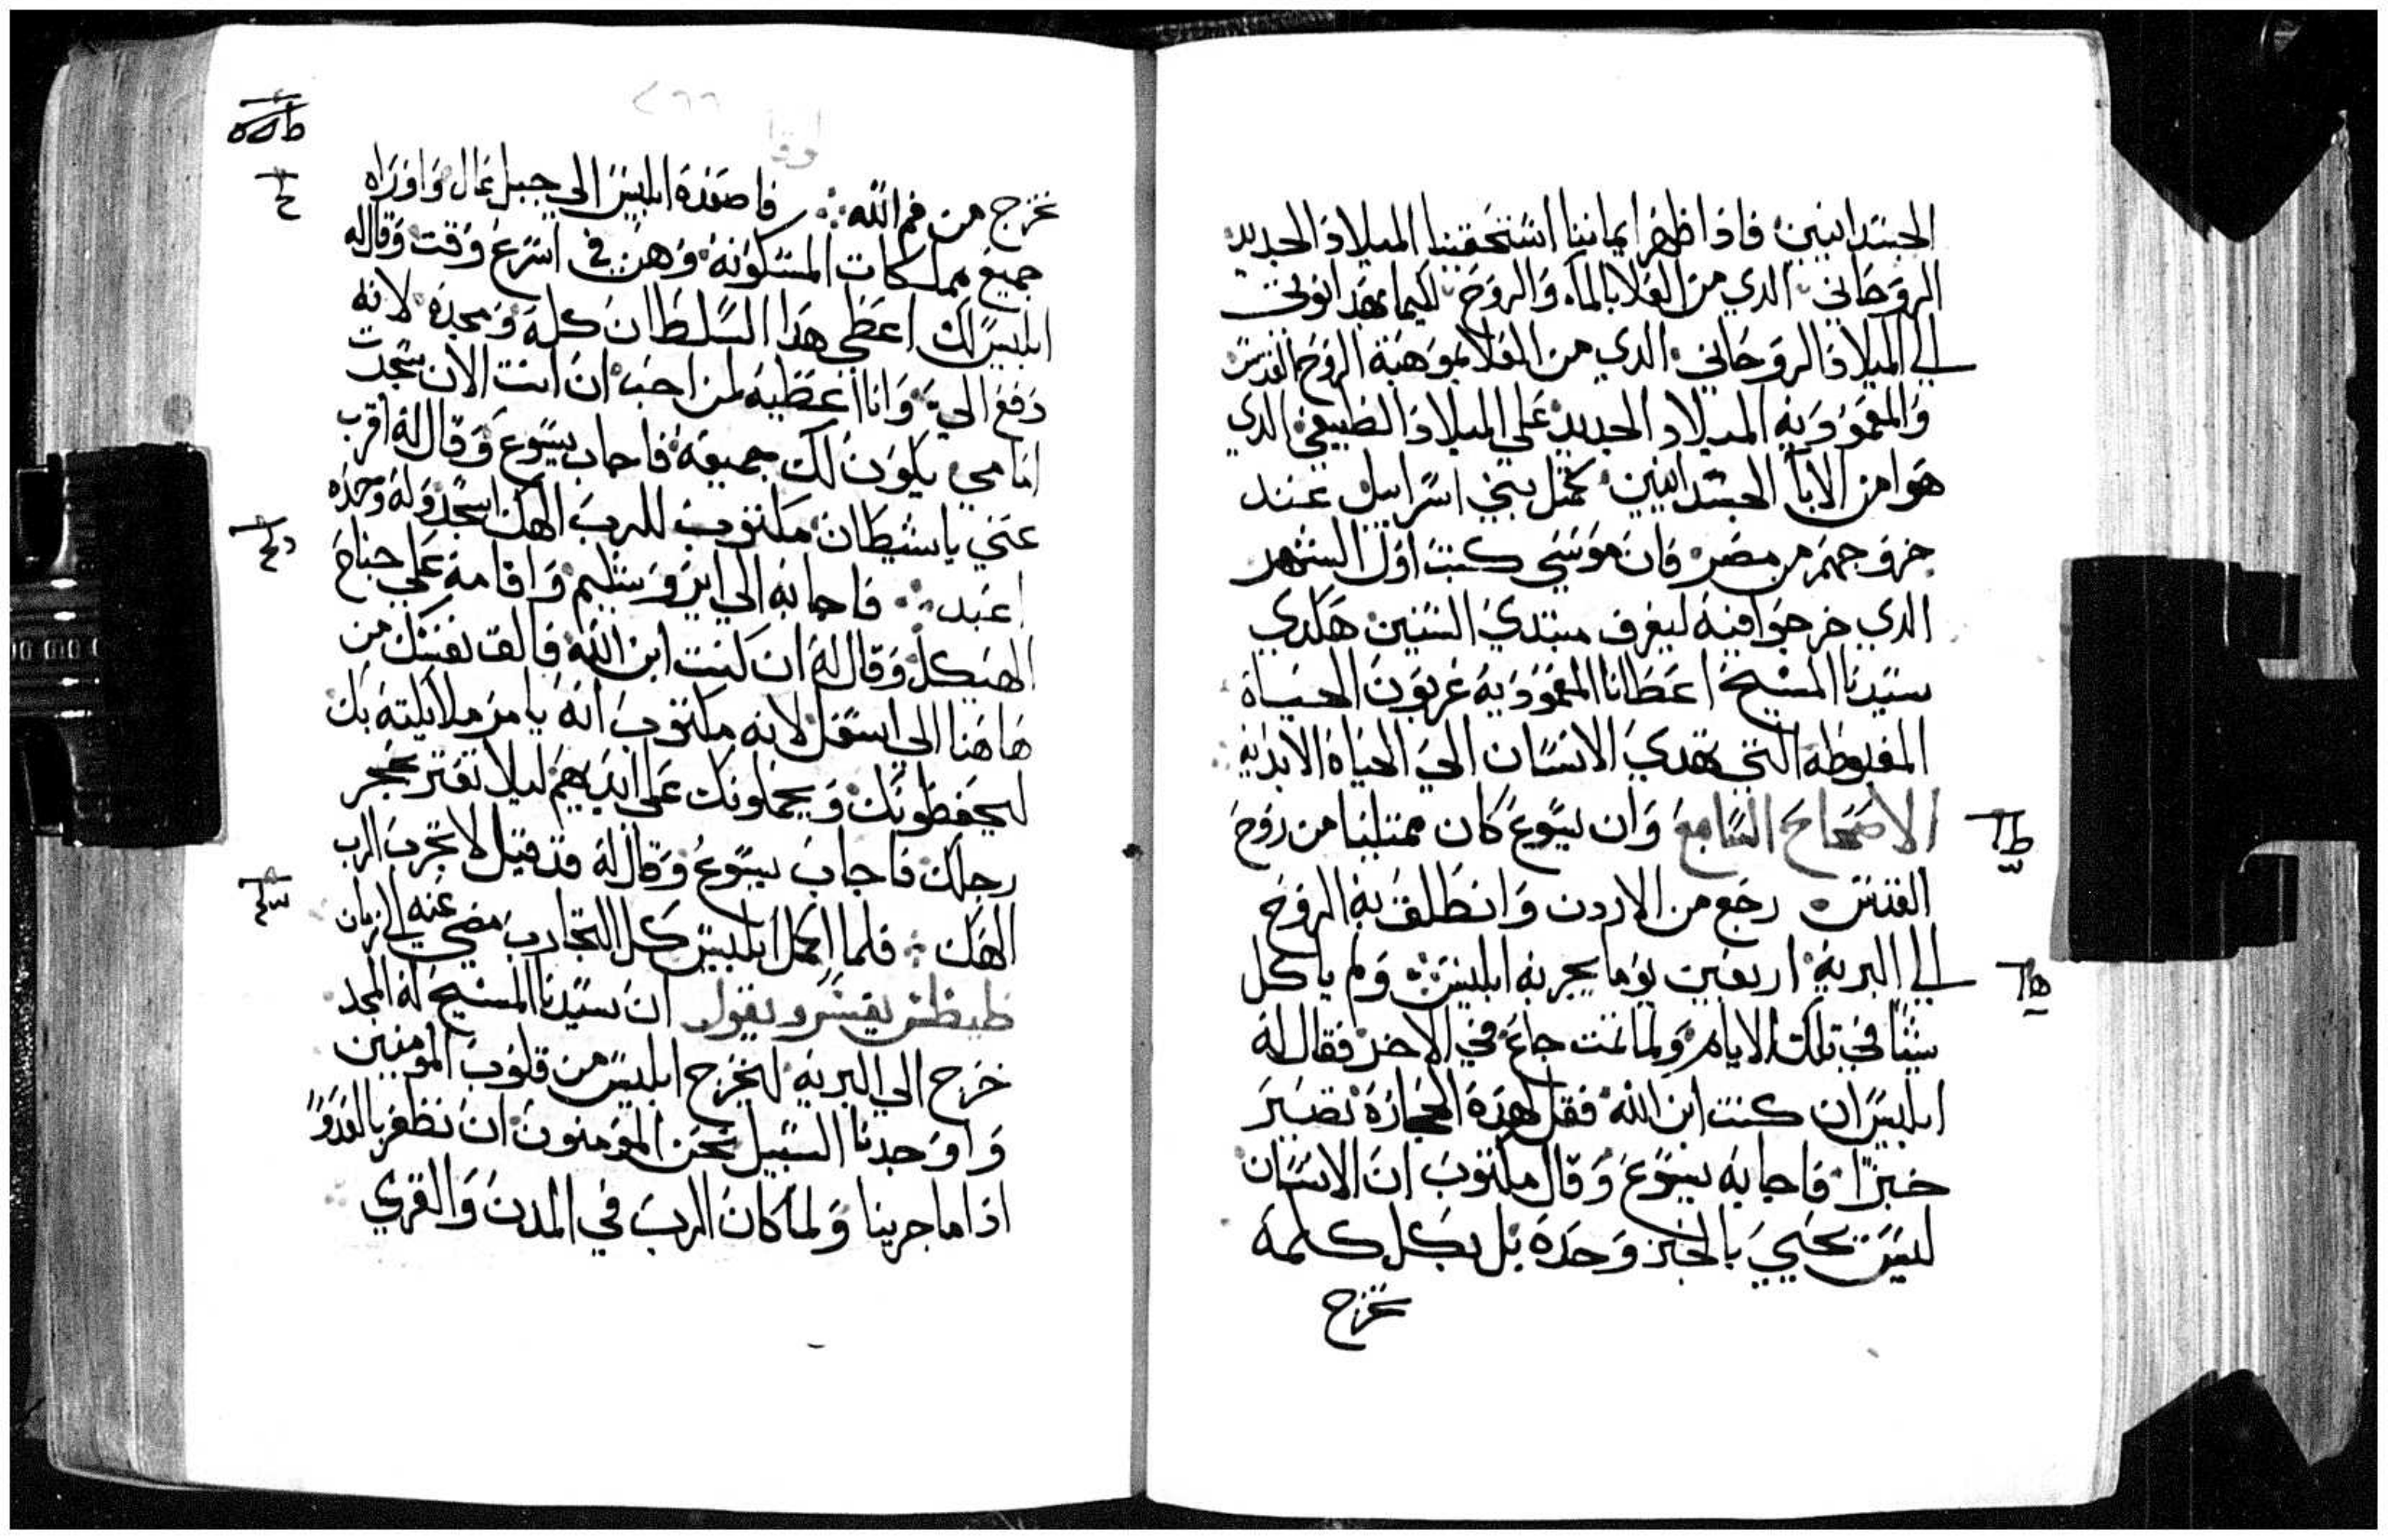 الجسدانيين فاذا ظهر ايماننا استحقينا الميلاد الجديد
الروحاني الدي من العلا بالماء والروح لكيما بهدا نوتي
الي الميلاد الروحاني الدي من العلا بموهبة الروح القدس
والمعموديه الميلاد الجديد على الميلاد الطبيعي الدي
هوا من الابا الجسدانيين كمثل بني اسراييل عند
خروجهم من مصر فان موسى كتب اول الشهر
الدي خرجوا فيه ليعرف مبتدي السنين هكدي
سيدنا المسيح اعطانا المعموديه عربون الحياة
المغبوطه التي تهدي الانسان الي الحياة الابديه
الاصحاح السابع وان يسوع كان ممتليا من روح
القدس رجع من الاردن وانطلق به الروح
الي البريه اربعين يوما يجربه ابليس ولم ياكل
شيا في تلك الايام ولما تمت جاع في الاخر فقال له
ابليس ان كنت ابن الله فقل لهده الحجارة تصير
خبزا فاجابه يسوع وقال مكتوب ان الانسان
ليس يحيي بالخبز وحده بل بكل كلمة
تخرج
٢٦٦
لوقا
تخرج من فم الله فاصعده ابليس الي جبل عال واوراه
جميع مملكات المسكونه وهن في اسرع وقت وقال له
ابليس لك اعطي هدا السلطان كله ومجده لانه
دفع الي وانا اعطيه لمن احب ان انت الان سجدت
امامي يكون لك جميعه فاجاب يسوع وقال له اقرب
عني يا شيطان مكتوب للرب الهك اسجد وله وحده
اعبد فاجا به الي ايروشليم واقامه على جناح
الهيكل وقال له ان كنت ابن الله فالق نفسك من
هاهنا الي اسفل لانه مكتوب انه يامر ملايكته بك
ليحفظونك ويحملونك على ايديهم ليلا تعتر بحجر
رجلك فاجاب يسوع وقال له قد قيل لا تجرب الرب
الهك فلما اكمل ابليس كل التجارب مضي عنه الي زمان
طيطس يفسر ويقول ان سيدنا المسيح له المجد
خرج الي البريه ليخرج ابليس من قلوب المومنين
واوجدنا السبيل نحن المومنون ان نظفر بالعدو
اذا ما جربنا ولما كان الرب في المدن والقري